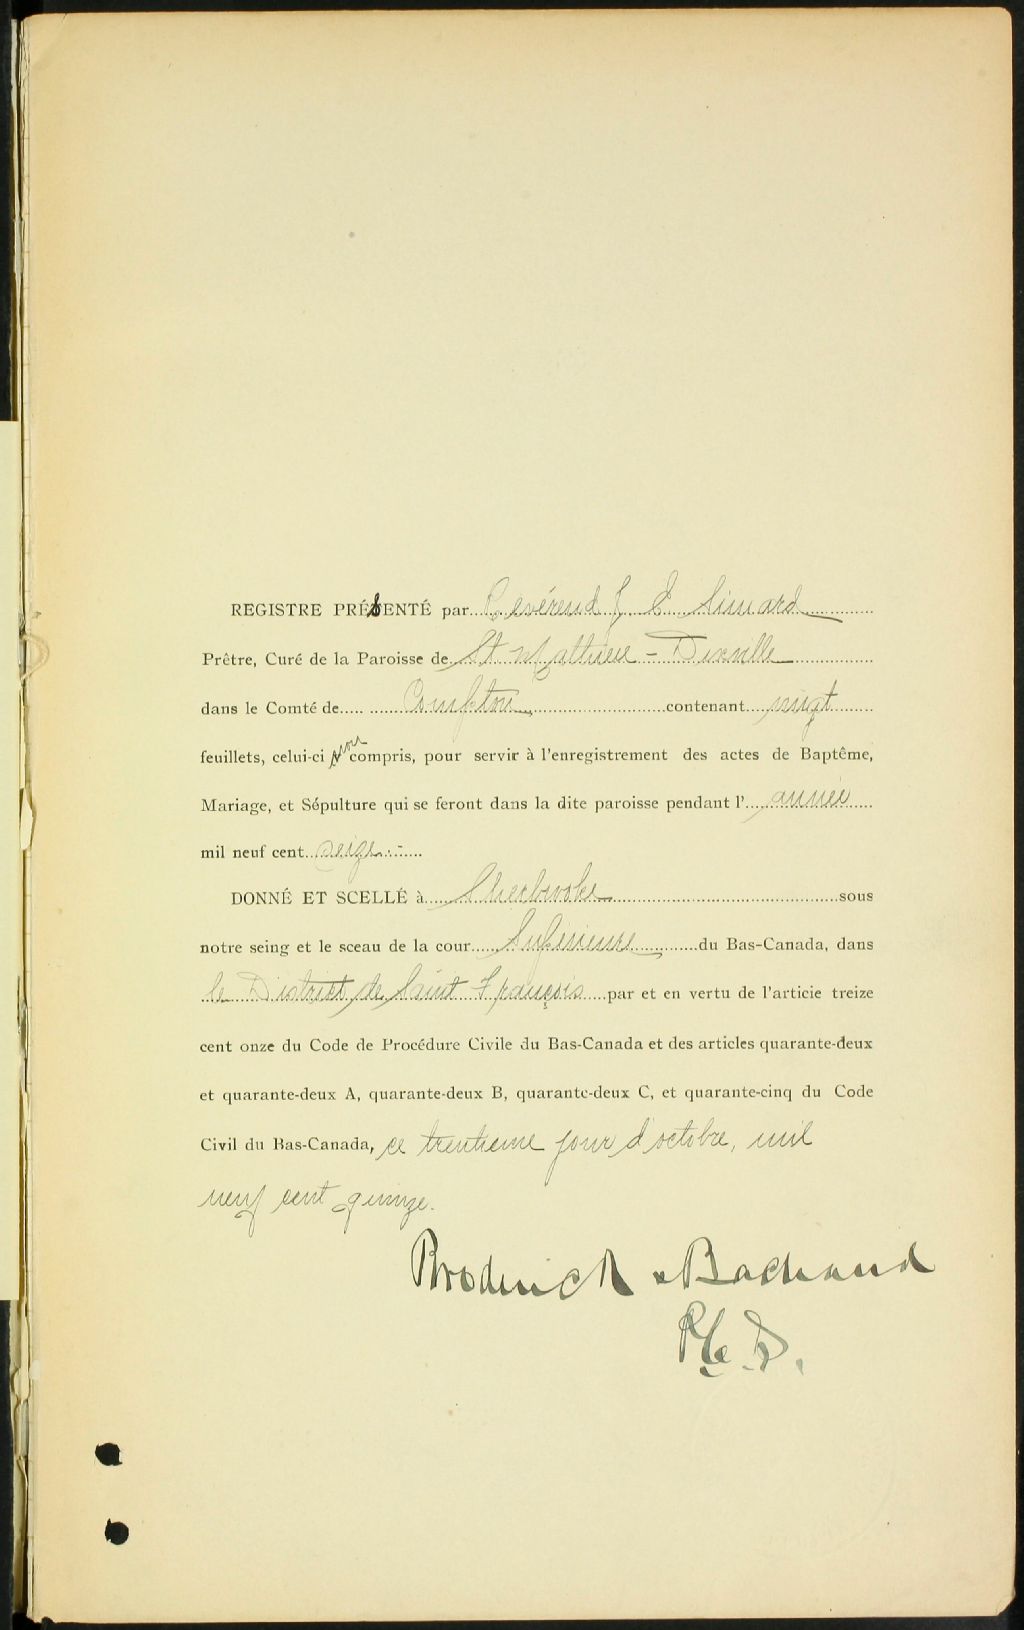 REGISTRE PRÉSENTÉ par Révérend J. E. Simard
Prêtre, Curé de la Paroisse de St Mathieu - Dixville
dans le Comté de Compton contenant vingt
feuillets, celui-ci non compris, pour servir à l'enregistrement des actes de Baptême,
Mariage, et Sépulture qui se feront dans la dite paroisse pendant l'année
mil neuf cent seize.-
DONNÉ ET SCELLÉ à Sherbrooke sous
notre seing et le sceau de la cour Supérieure du Bas-Canada, dans
le District de Saint François par et en vertu de l'articie treize
cent onze du Code de Procédure Civile du Bas-Canada et des articles quarante-deux
et quarante-deux A, quarante-deux B, quarante-deux C, et quarante-cinq du Code
Civil du Bas-Canada, ce trentieme jour d'octobre, mil
neuf cent quinze.
Broderick & Bachand